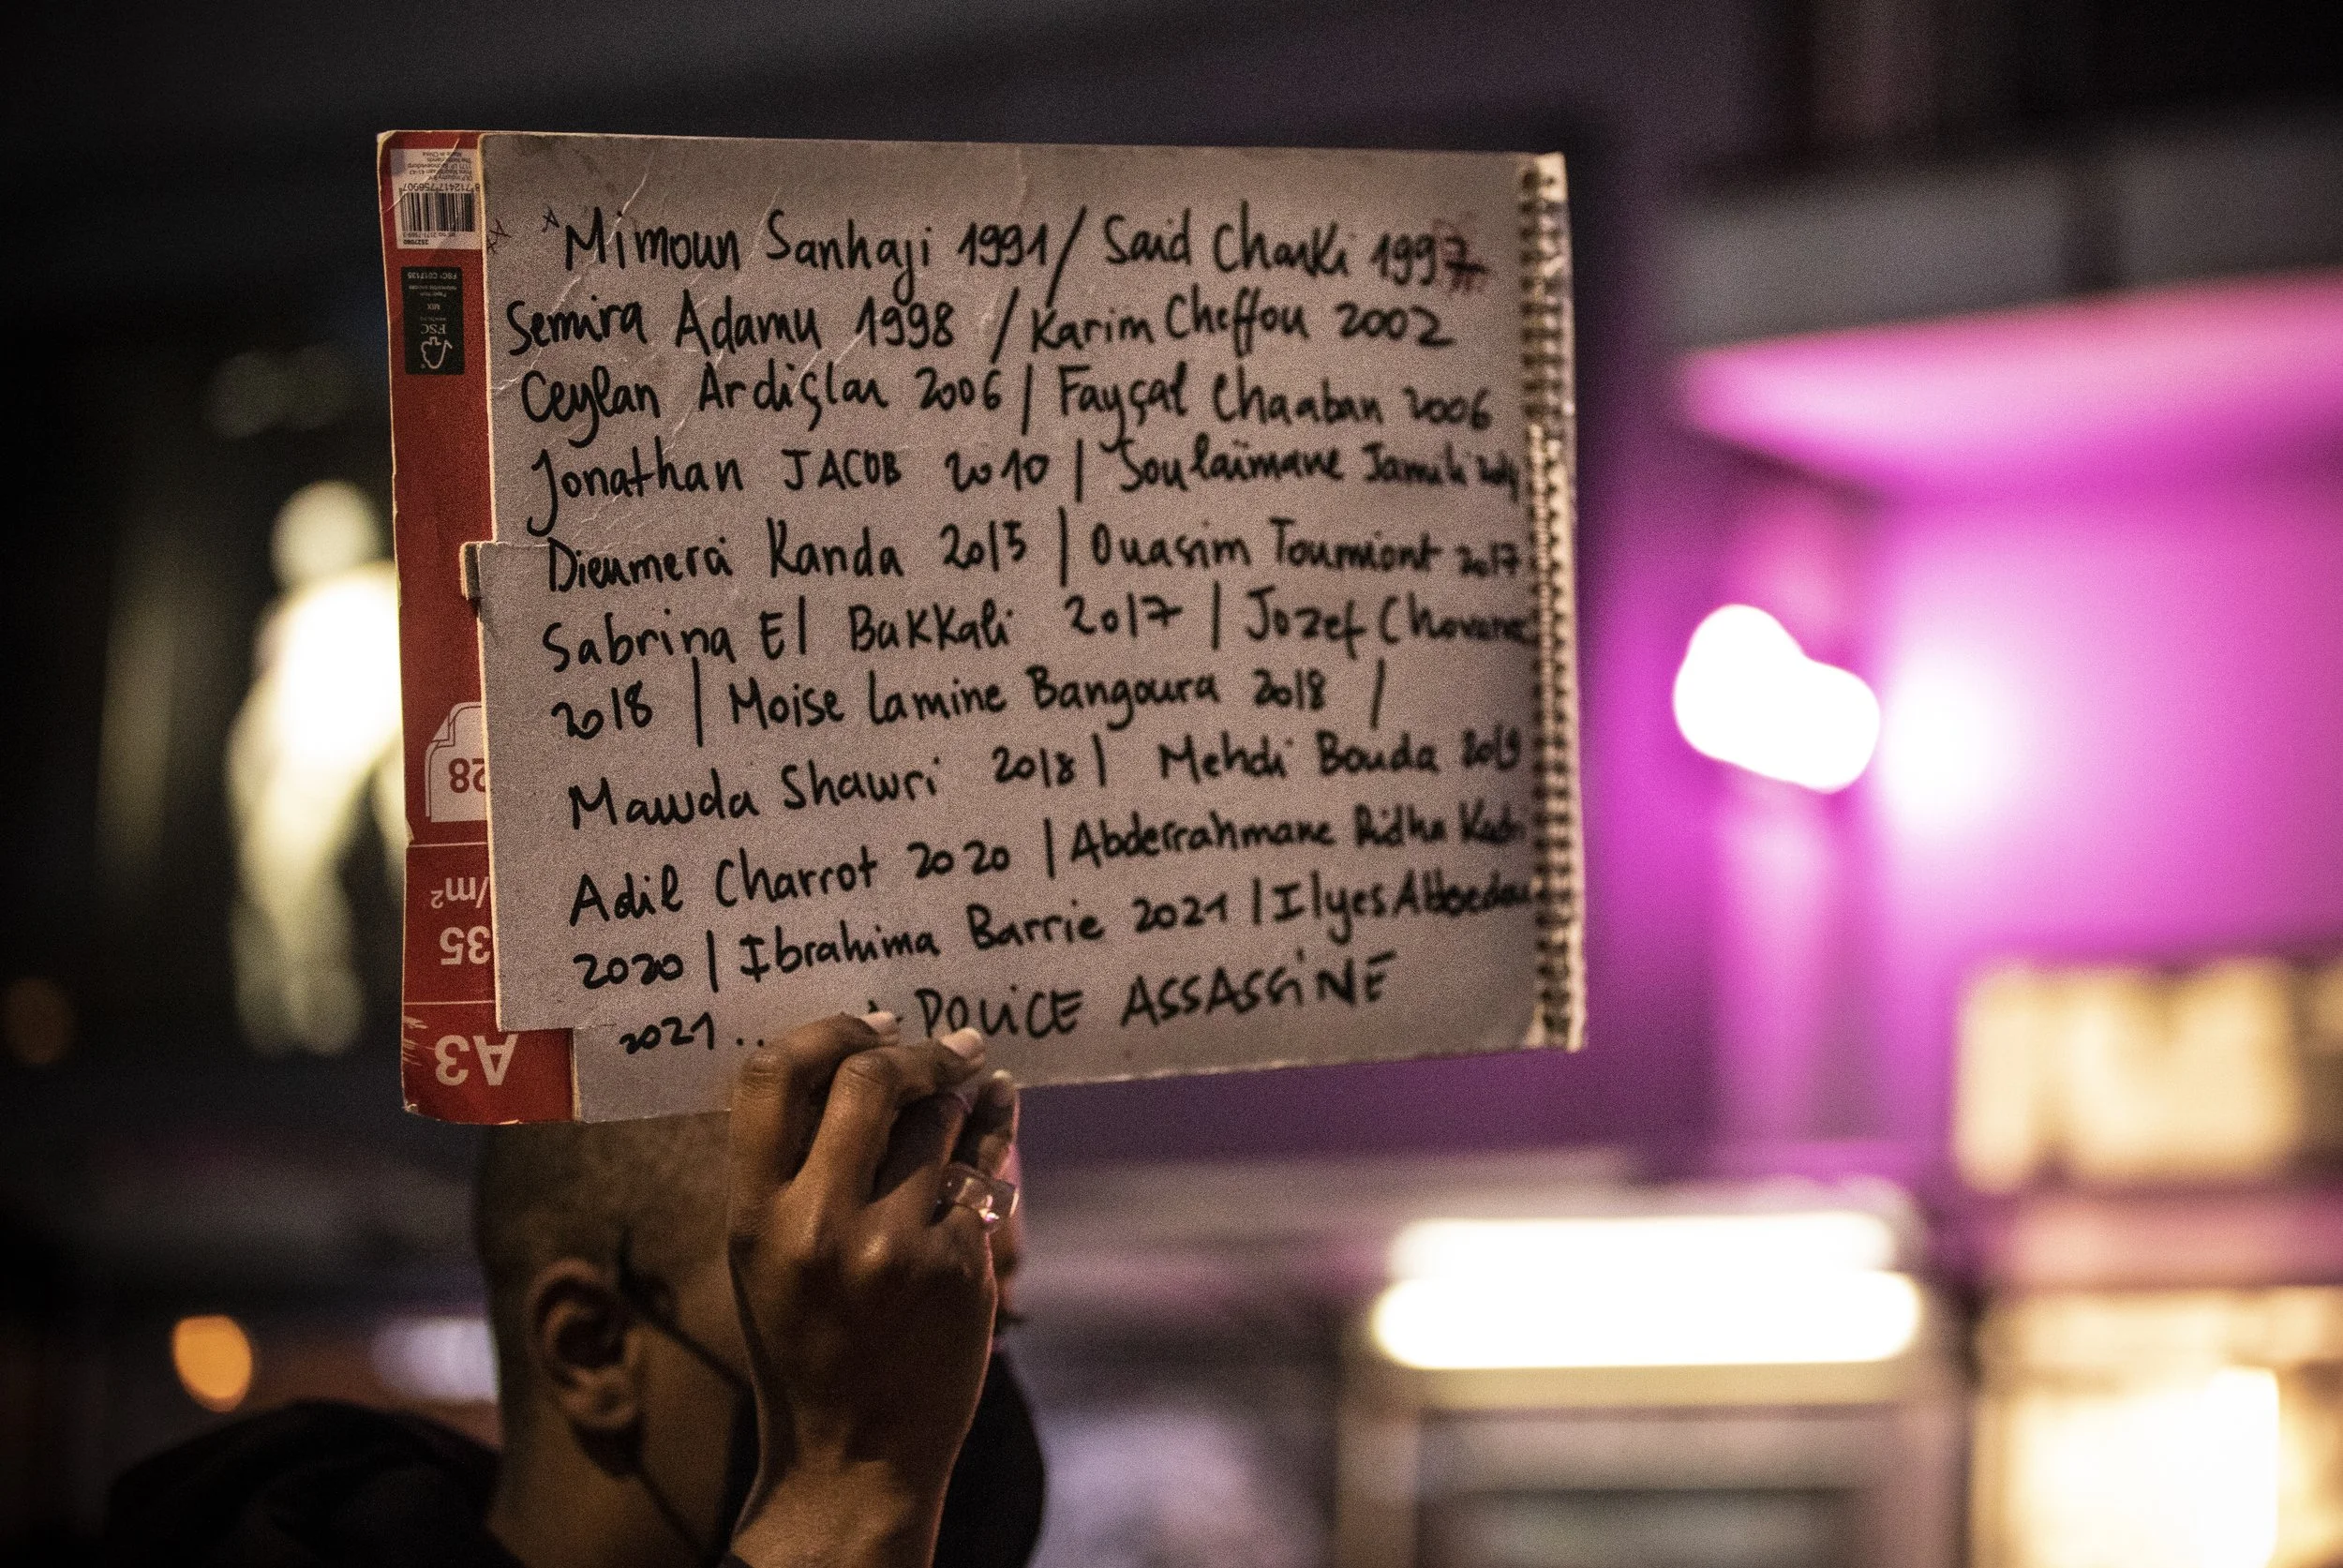 Mimoun Sanhaji 1991 / Said Charki 1997
Semira Adamu 1998 / Karim Cheffou 2002
Ceylan Ardiçlar 2006 | Fayçal Chaaban 2006
Jonathan JACOB 2010 | Soulaïmane Jamili
Dieumerci Kanda 2015 | Ouasim Toumiont 2017
Sabrina El Bakkali 2017 | Jozef Chovanec
2018 | Moise Lamine Bangoura 2018 /
Mawda Shawri 2018 | Mehdi Bouda 2019
Adil Charrot 2020 | Abderrahmane Ridha
2020 | Ibrahima Barrie 2021 | Ilyes
2021.. POLiCE ASSASSiNE
8 712417 756907
FSC
MIX
28
35
/m²
A3